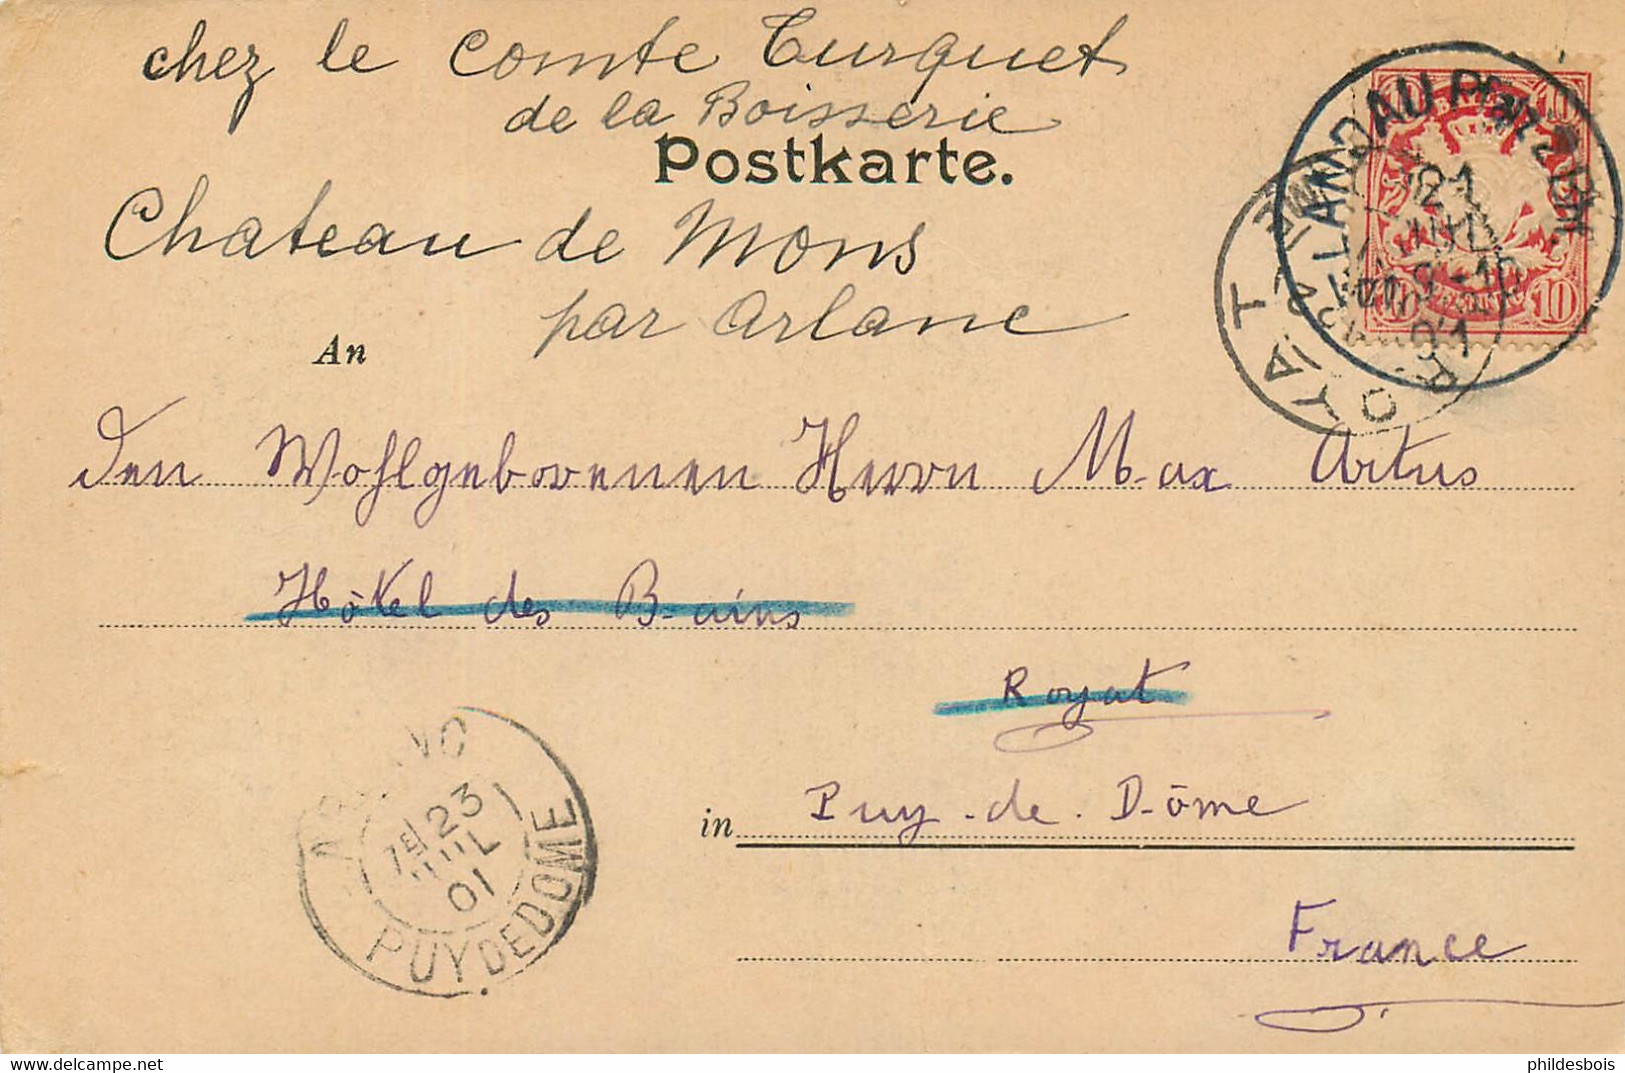 chez le comte Turquet
de la Boisserie
Postkarte.
Chateau de Mons
par Arlanc
An
Den Wohlgeborenen Herrn Max Artus
Hôtel des Bains
Royat
in Puy-de-Dôme
France
LANDAU
ROYAT
10
23
JUIL
01
PUY DE DOME
www.delcampe.net
phildesbois